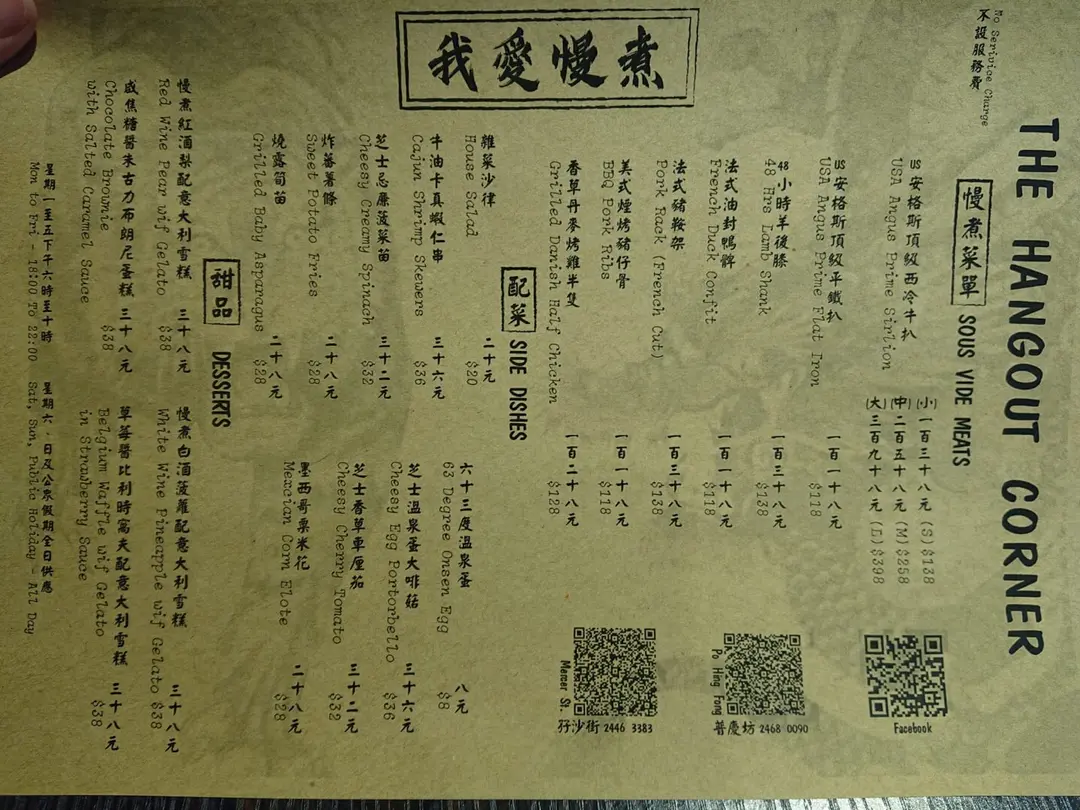 THE HANGOUT CORNER
No Serivice Charge
不設服務費
我愛慢煮
慢煮菜單 SOUS VIDE MEATS
US安格斯頂級西冷牛扒
USA Angus Prime Sirlion
(小) 一百三十八元 (S) $138
(中) 二百五十八元 (M) $258
(大) 三百九十八元 (L) $398
US安格斯頂級平鐵扒 一百一十八元
USA Angus Prime Flat Iron $118
48小時羊後膝 一百三十八元
48 Hrs Lamb Shank $138
法式油封鴨髀 一百一十八元
French Duck Confit $118
法式豬鞍架 一百三十八元
Pork Rack (French Cut) $138
美式煙烤豬仔骨 一百一十八元
BBQ Pork Ribs $118
香草丹麥烤雞半隻 一百二十八元
Grilled Danish Half Chicken $128
Facebook
Po Hing Fong
普慶坊 2468 0090
Mercer St.
孖沙街 2446 3383
配菜 SIDE DISHES
雜菜沙律 二十元
House Salad $20
牛油卡真蝦仁串 三十六元
Cajun Shrimp Skewers $36
芝士忌廉菠菜苗 三十二元
Cheesy Creamy Spinach $32
炸蕃薯條 二十八元
Sweet Potato Fries $28
燒露筍苗 二十八元
Grilled Baby Asparagus $28
六十三度溫泉蛋 八元
63 Degree Onsen Egg $8
芝士溫泉蛋大啡菇 三十六元
Cheesy Egg Portorbello $36
芝士香草車厘茄 三十二元
Cheesy Cherry Tomato $32
墨西哥粟米花 二十八元
Mexcian Corn Elote $28
甜品 DESSERTS
慢煮紅酒梨配意大利雪糕 三十八元
Red Wine Pear wif Gelato $38
咸焦糖醬朱古力布朗尼蛋糕 三十八元
Chocolate Brownie $38
with Salted Caramel Sauce
慢煮白酒菠蘿配意大利雪糕 三十八元
White Wine Pineapple wif Gelato $38
草莓醬比利時窩夫配意大利雪糕 三十八元
Belgium Waffle wif Gelato $38
in Strawberry Sauce
星期一至五下午六時至十時 星期六，日及公眾假期全日供應
Mon to Fri - 18:00 To 22:00 Sat, Sun, Public Holiday - All Day